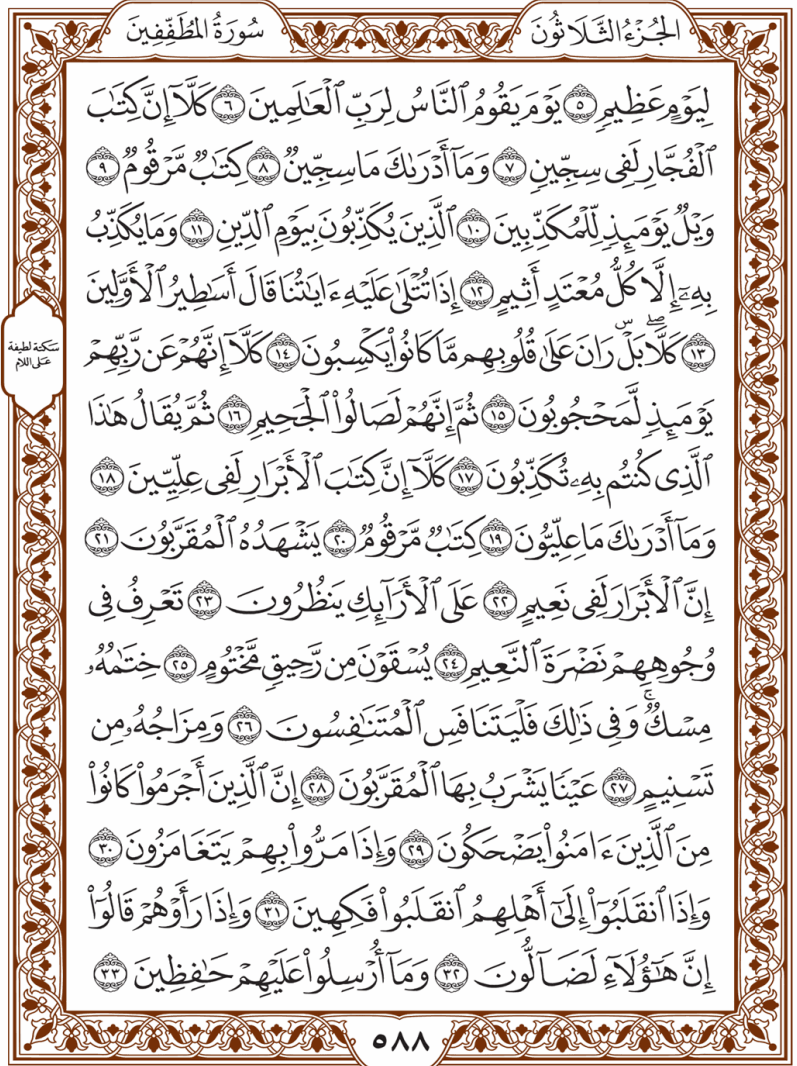 الجُزْءُ الثَّلَاثُونَ
سُورَةُ المُطَفِّفِينَ
لِيَوْمٍ عَظِيمٍ ٥ يَوْمَ يَقُومُ ٱلنَّاسُ لِرَبِّ ٱلْعَٰلَمِينَ ٦ كَلَّآ إِنَّ كِتَٰبَ
ٱلْفُجَّارِ لَفِى سِجِّينٍ ٧ وَمَآ أَدْرَىٰكَ مَا سِجِّينٌ ٨ كِتَٰبٌ مَّرْقُومٌ ٩
وَيْلٌ يَوْمَئِذٍ لِّلْمُكَذِّبِينَ ١٠ ٱلَّذِينَ يُكَذِّبُونَ بِيَوْمِ ٱلدِّينِ ١١ وَمَا يُكَذِّبُ
بِهِۦٓ إِلَّا كُلُّ مُعْتَدٍ أَثِيمٍ ١٢ إِذَا تُتْلَىٰ عَلَيْهِ ءَايَٰتُنَا قَالَ أَسَٰطِيرُ ٱلْأَوَّلِينَ
١٣ كَلَّاۖ بَلْۜ رَانَ عَلَىٰ قُلُوبِهِم مَّا كَانُوا۟ يَكْسِبُونَ ١٤ كَلَّآ إِنَّهُمْ عَن رَّبِّهِمْ
سكتة لطيفة
على اللام
يَوْمَئِذٍ لَّمَحْجُوبُونَ ١٥ ثُمَّ إِنَّهُمْ لَصَالُوا۟ ٱلْجَحِيمِ ١٦ ثُمَّ يُقَالُ هَٰذَا
ٱلَّذِى كُنتُم بِهِۦ تُكَذِّبُونَ ١٧ كَلَّآ إِنَّ كِتَٰبَ ٱلْأَبْرَارِ لَفِى عِلِّيِّينَ ١٨
وَمَآ أَدْرَىٰكَ مَا عِلِّيُّونَ ١٩ كِتَٰبٌ مَّرْقُومٌ ٢٠ يَشْهَدُهُ ٱلْمُقَرَّبُونَ ٢١
إِنَّ ٱلْأَبْرَارَ لَفِى نَعِيمٍ ٢٢ عَلَى ٱلْأَرَآئِكِ يَنظُرُونَ ٢٣ تَعْرِفُ فِى
وُجُوهِهِمْ نَضْرَةَ ٱلنَّعِيمِ ٢٤ يُسْقَوْنَ مِن رَّحِيقٍ مَّخْتُومٍ ٢٥ خِتَٰمُهُۥ
مِسْكٌۚ وَفِى ذَٰلِكَ فَلْيَتَنَافَسِ ٱلْمُتَنَٰفِسُونَ ٢٦ وَمِزَاجُهُۥ مِن
تَسْنِيمٍ ٢٧ عَيْنًا يَشْرَبُ بِهَا ٱلْمُقَرَّبُونَ ٢٨ إِنَّ ٱلَّذِينَ أَجْرَمُوا۟ كَانُوا۟
مِنَ ٱلَّذِينَ ءَامَنُوا۟ يَضْحَكُونَ ٢٩ وَإِذَا مَرُّوا۟ بِهِمْ يَتَغَامَزُونَ ٣٠
وَإِذَا ٱنقَلَبُوٓا۟ إِلَىٰٓ أَهْلِهِمُ ٱنقَلَبُوا۟ فَكِهِينَ ٣١ وَإِذَا رَأَوْهُمْ قَالُوٓا۟
إِنَّ هَٰٓؤُلَآءِ لَضَآلُّونَ ٣٢ وَمَآ أُرْسِلُوا۟ عَلَيْهِمْ حَٰفِظِينَ ٣٣
٥٨٨